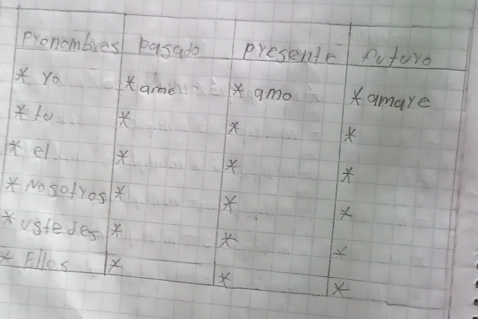 Pronombres pasado presente futuro
* Yo * ame * amo * amare
* tu * * *
* el * * *
* Nosotras * * *
* ustedes * * *
* Ellos * * *